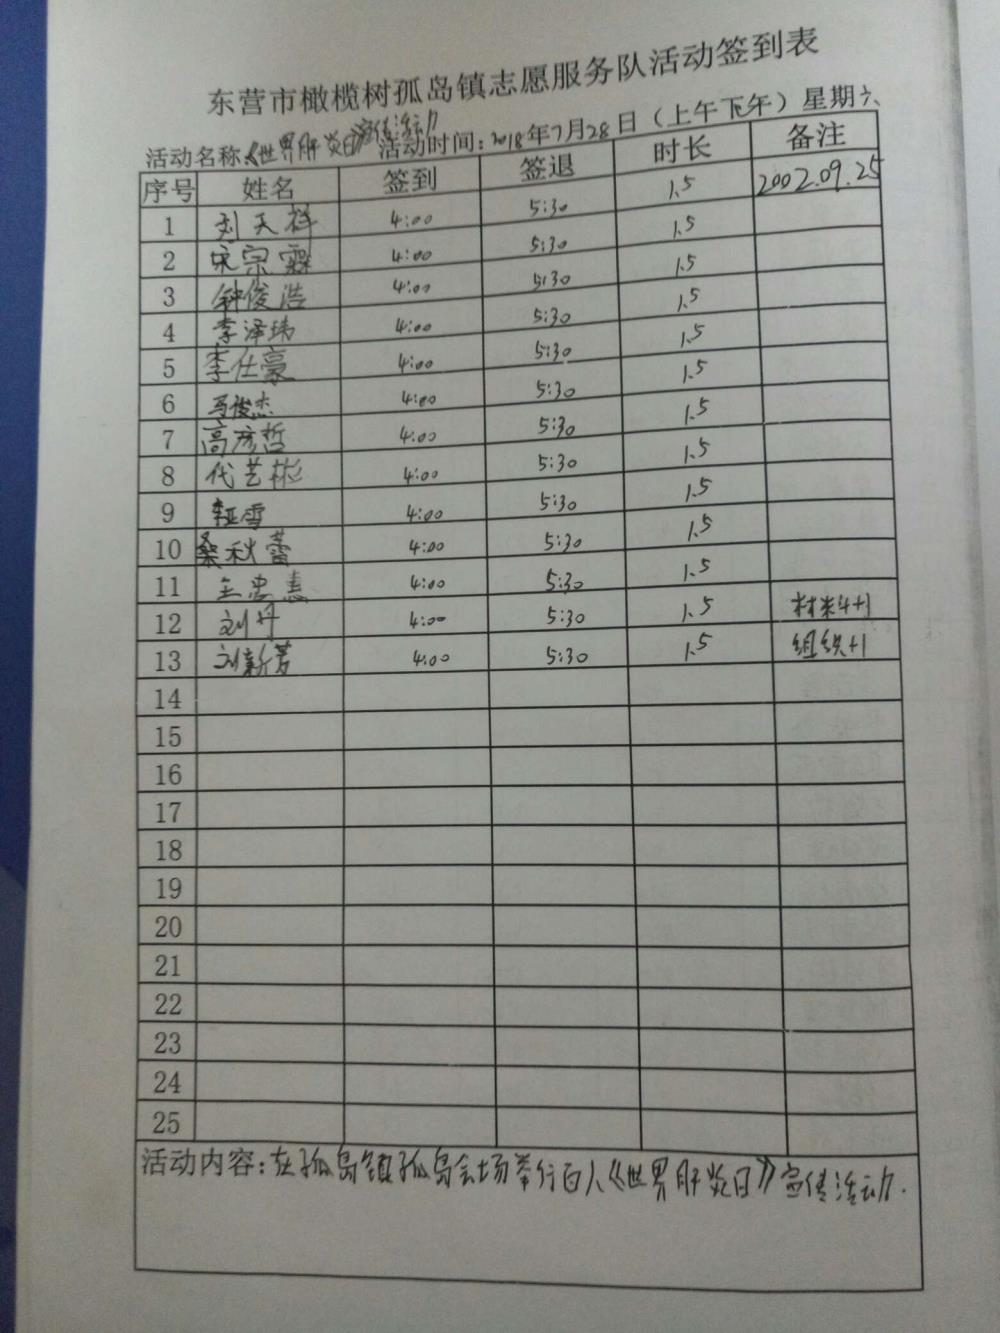 东营市橄榄树孤岛镇志愿服务队活动签到表
活动名称:《世界肝炎日》宣传活动 活动时间:2018年7月28日(上午下午)星期六
序号 姓名 签到 签退 时长 备注
1 刘天祥 4:00 5:30 1.5 2002.09.25
2 宋宗霖 4:00 5:30 1.5
3 钟俊浩 4:00 5:30 1.5
4 李泽玮 4:00 5:30 1.5
5 李仕豪 4:00 5:30 1.5
6 马俊杰 4:00 5:30 1.5
7 高彦哲 4:00 5:30 1.5
8 代艺彬 4:00 5:30 1.5
9 李亚雪 4:00 5:30 1.5
10 桑秋蕾 4:00 5:30 1.5
11 王忠惠 4:00 5:30 1.5
12 刘丹 4:00 5:30 1.5 材料+1
13 刘新芳 4:00 5:30 1.5 组织+1
14
15
16
17
18
19
20
21
22
23
24
25
活动内容:在孤岛镇孤岛会场举行百人《世界肝炎日》宣传活动.